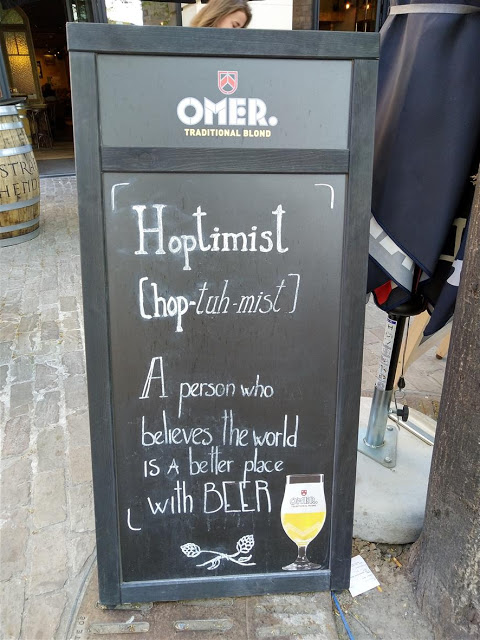 OMER.
TRADITIONAL BLOND
Hoptimist
[hop-tuh-mist]
A person who
believes the world
IS A better place
with BEER
OMER.